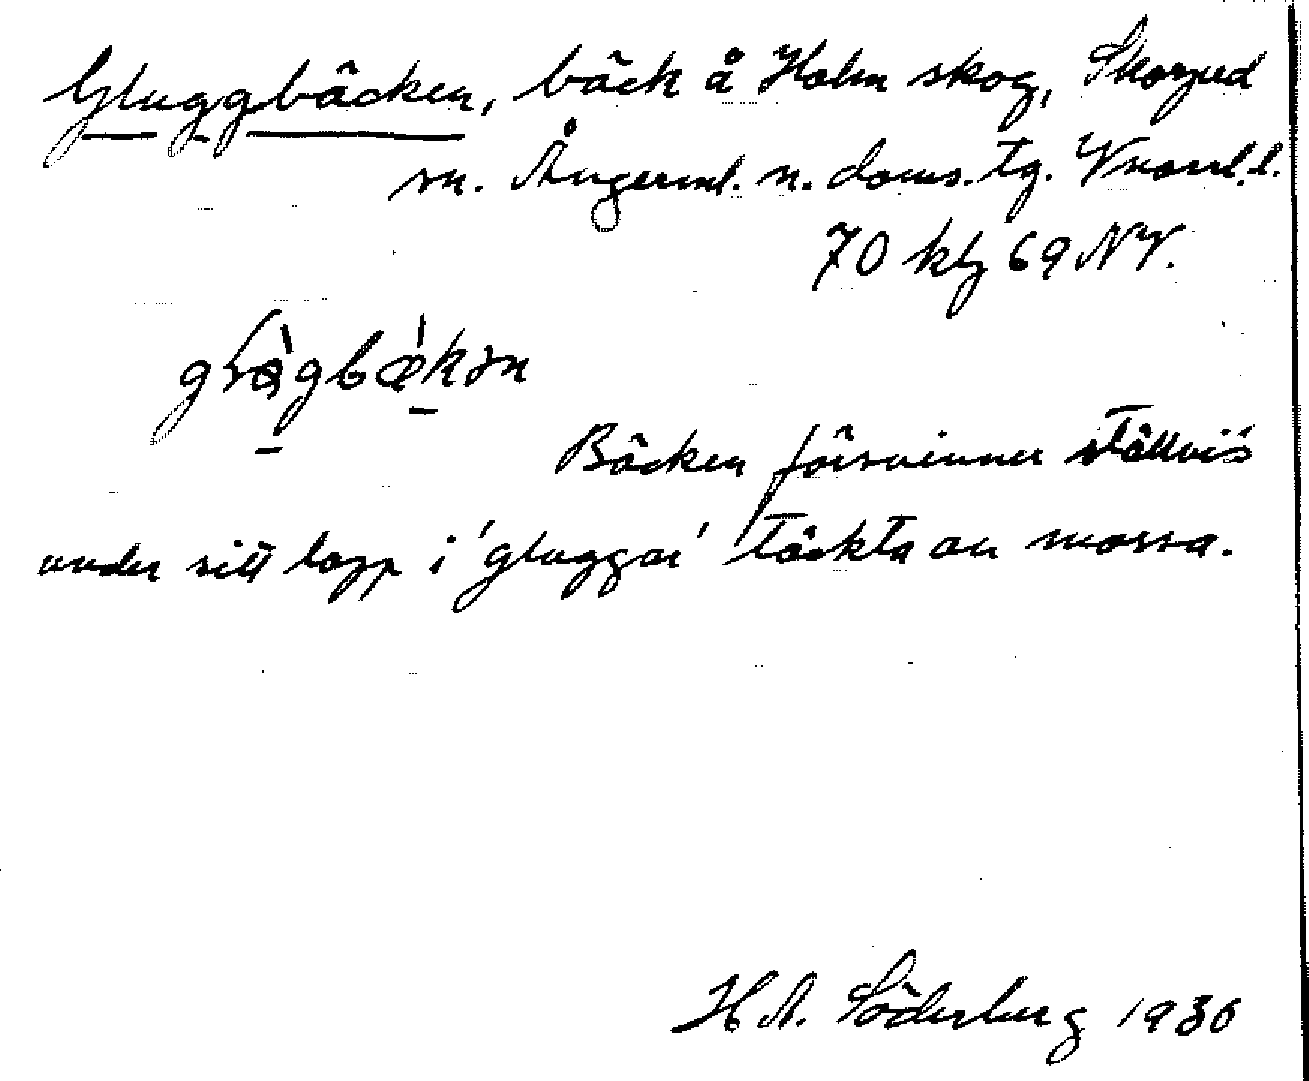 Gluggbäcken, bäck å Holm skog, Skorped
sn. Ångerml. n. doms. tg. Vnorrl. l.
70 kbl 69 NV.
Bäcken försvinner ställvis
under sitt lopp i 'gluggar' täckta av mossa.
H A. Söderberg 1936